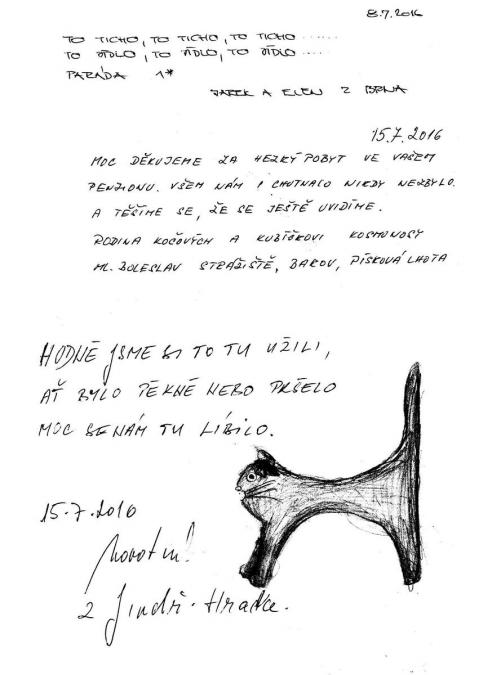 8.7.2016
TO TICHO, TO TICHO, TO TICHO ......
TO JÍDLO, TO JÍDLO, TO JÍDLO ......
PARÁDA 1*
JAREK A ELEN Z BRNA
15.7.2016
MOC DĚKUJEME ZA HEZKÝ POBYT VE VAŠEM
PENZIONU. VŠEM NÁM I CHUTNALO NIKDY NEZBYLO.
A TĚŠÍME SE, ŽE SE JEŠTĚ UVIDÍME.
RODINA KOČOVÝCH A KUBÍČKOVI KOSMONOSY
ML. BOLESLAV STRÁŽIŠTĚ, BAKOV, PÍSKOVÁ LHOTA
HODNĚ JSME SI TO TU UŽILI,
AŤ BYLO PĚKNĚ NEBO PRŠELO
MOC SE NÁM TU LÍBILO.
15.7.2016
z Jindř. Hradce.